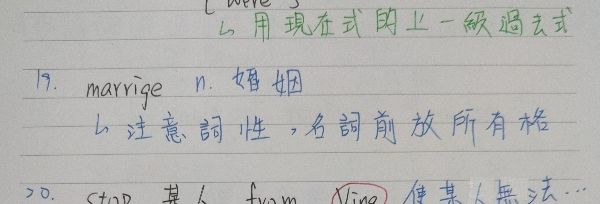 were
↳ 用現在式的上一級過去式
19. marrige n. 婚姻
↳ 注意詞性，名詞前放所有格
20. stop 某人 from Ving 使某人無法…